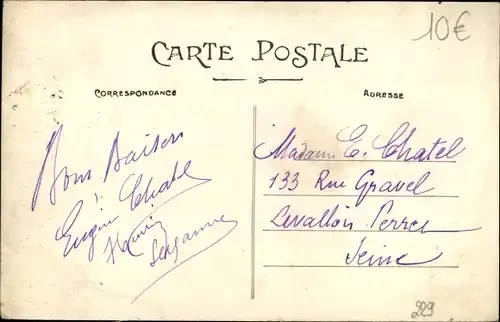 10€
CARTE POSTALE
CORRESPONDANCE
ADRESSE
Bons Baisers
Eugène Chatel
Henri
Suzanne
Madame E. Chatel
133 Rue Gravel
Levallois Perret
Seine
229